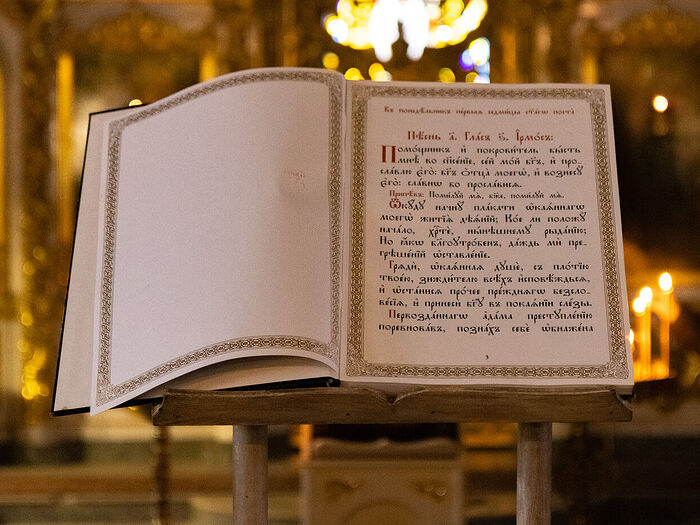 Въ понедѣльникъ пе́рвыя седми́цы ст҃а́гѡ поста̀
Пѣ́снь а҃. Гла́съ ѕ҃. І҆рмо́съ:
Помо́щникъ и҆ покрови́тель бы́сть
мнѣ̀ во сп҃се́нїе, се́й мо́й бг҃ъ, и҆ про-
сла́влю є҆го̀: бг҃ъ ѻ҆тца̀ моегѡ̀, и҆ вознесꙋ̀
є҆го̀: сла́внѡ бо просла́висѧ.
Припѣ́въ: Поми́лꙋй мѧ̀, бж҃е, поми́лꙋй мѧ̀.
Ѿкꙋ́дꙋ начнꙋ̀ пла́кати ѻ҆каѧ́ннагѡ
моегѡ̀ житїѧ̀ дѣѧ́нїй; Ко́е ли положꙋ̀
нача́ло, хрⷭ҇тѐ, ны́нѣшнемꙋ рыда́нїю;
Но ꙗ҆́кѡ бл҃гоꙋтро́бенъ, да́ждь мѝ пре-
грѣше́нїй ѡ҆ставле́нїе.
Грѧдѝ, ѻ҆каѧ́ннаѧ дꙋшѐ, съ пло́тїю
твое́ю, зижди́телю всѣ́хъ и҆сповѣ́ждьсѧ,
и҆ ѡ҆ста́нисѧ про́чее пре́ждѧгѡ безсло-
ве́сїѧ, и҆ принесѝ бг҃ꙋ въ покаѧ́нїи сле́зы.
Первозда́ннаго а҆да́ма престꙋпле́нїю
поревнова́въ, позна́хъ себѐ ѡ҆бнаже́на
3